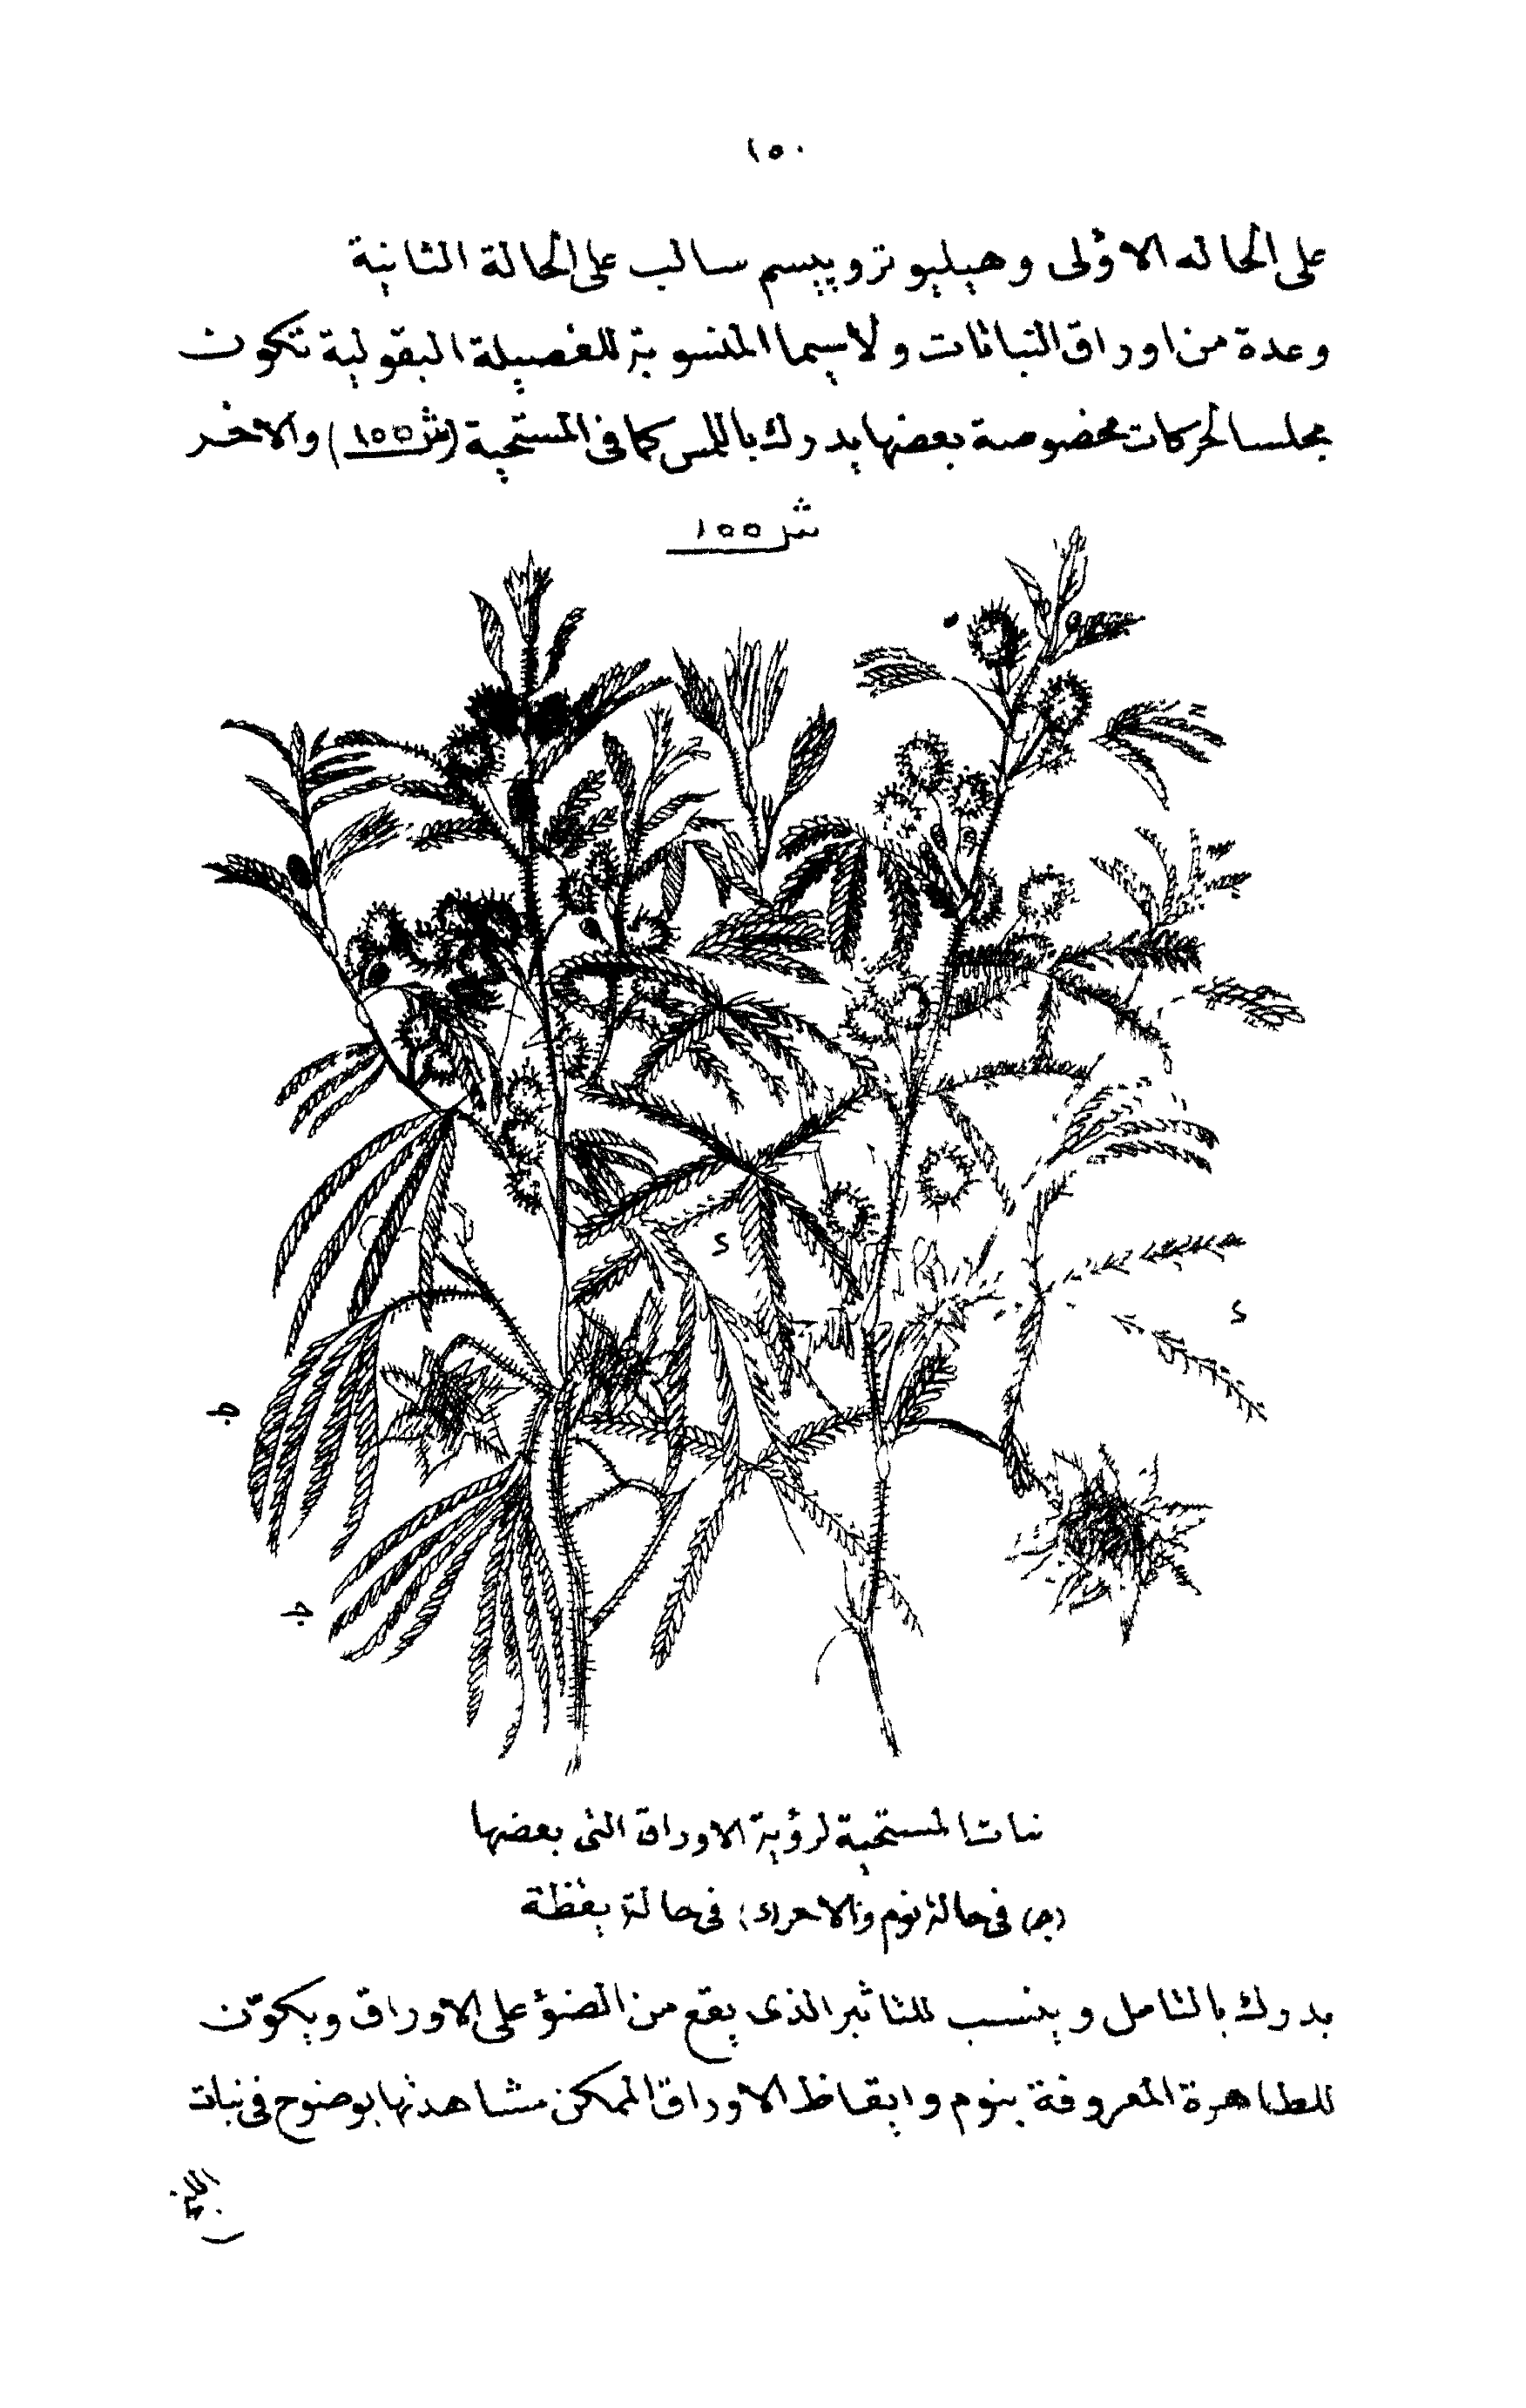 ١٥٠
على الحاله الاولى وهيليو تروپيسم سالب على الحالة الثانية
وعدة من اوراق النباتات ولاسيما المنسوبة للفصيلة البقولية تكون
مجلسا لحركات مخصوصة بعضها يدرك باللمس كما فى المستحية (ش ١٥٥) والاخر
ش ١٥٥
ج
ج
نبات المستحية لرؤية الاوراق التى بعضها
(ج) فى حالة نوم والاخر (د) فى حالة يقظة
يدرك بالتامل وينسب للتاثير الذى يقع من الضؤ على الاوراق ويكوّن
للظاهرة المعروفة بنوم وايقاظ الاوراق الممكن مشاهدتها بوضوح فى نبات